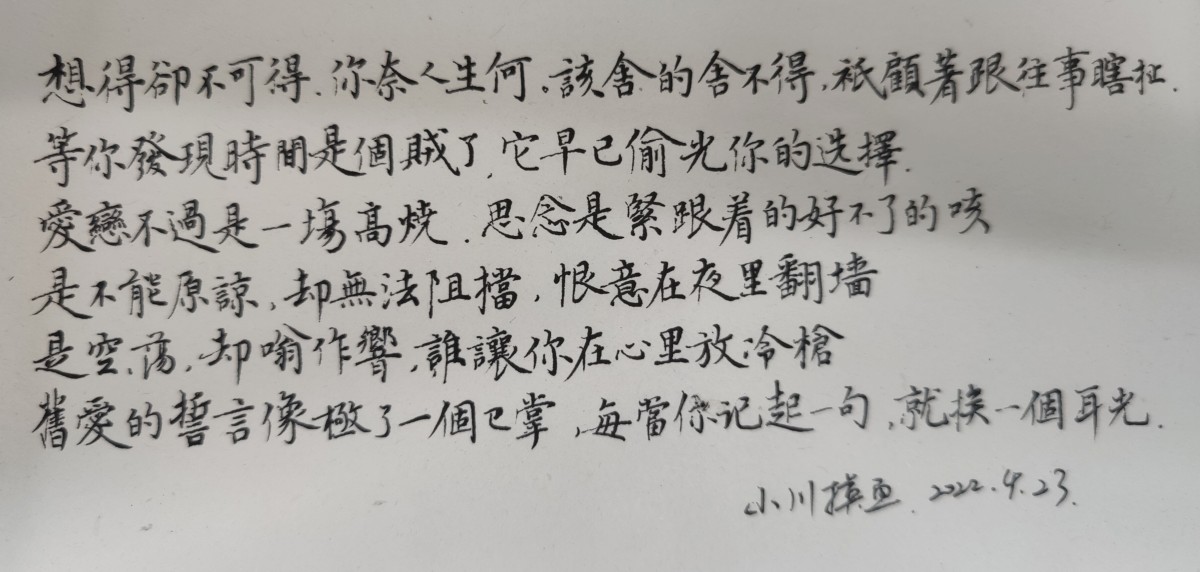 想得卻不可得.你奈人生何。該舍的舍不得,衹顧著跟往事瞎扯.
等你發現時間是個賊了,它早已偷光你的选擇.
愛戀不過是一場高燒.思念是緊跟着的好不了的咳
是不能原諒,却無法阻擋,恨意在夜里翻墙
是空荡,却嗡作響,誰讓你在心里放冷槍
舊愛的誓言像極了一個巴掌,每當你记起一句,就挨一個耳光.
小川 2022.4.23.